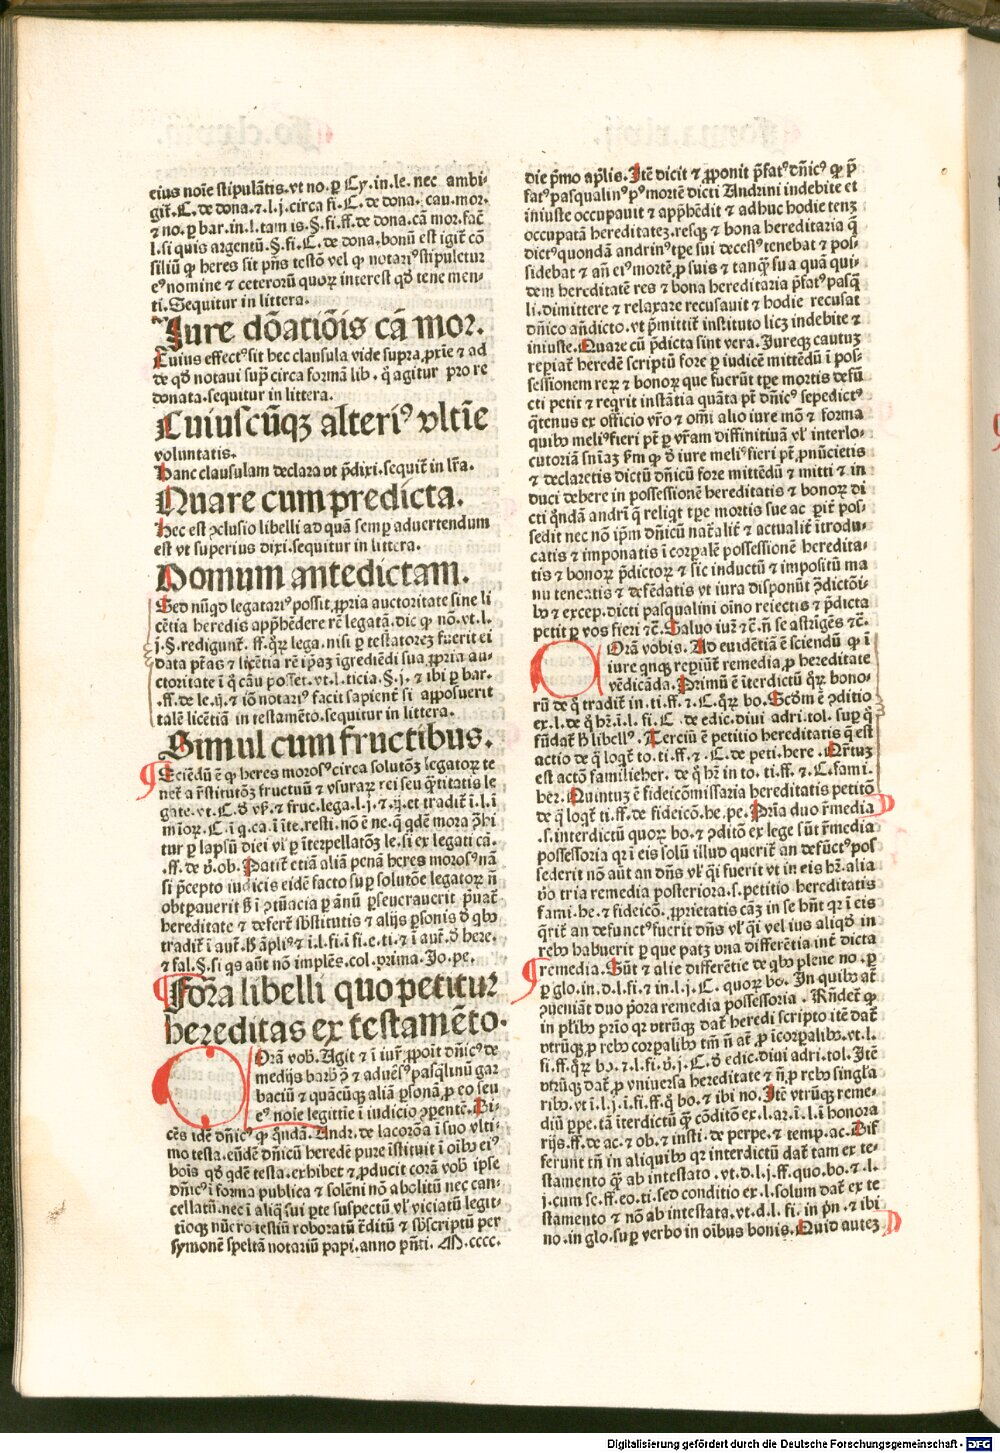 eius noīe stipulātis.vt no.ꝑ Cy.in.le.nec ambi-
git̄.C.de dona.⁊ l.j.circa fi.C.de dona.cau.mor.
⁊ no.ꝑ bar.in.l.tam is.§.fi.ff.de dona.cā mor.facit̄
l.si quis argentū.§.fi.C.de dona.bonū est igit̄ cō
siliū ꝙ heres sit pn̄s testō vel ꝙ notariꝰ stipuletur
eꝰ nomine ⁊ ceterorū quoꝝ interest qđ tene men-
ti.Sequitur in littera.
Iure dōatiōis cā mor.
Cuius effectꝰ sit hec clausula vide supra,ꝓxīe ⁊ ad
de qđ notaui supͣ circa formā lib.q̄ agitur pro re
donata.sequitur in littera.
Cuiuscūqꝫ alteriꝰ vltīe
voluntatis.
Hanc clausulam declara vt p̄dixi.sequit̄ in lr̄a.
Quare cum predicta.
Hec est ↄclusio libelli ad quā semꝑ aduertendum
est vt superius dixi.sequitur in littera.
Domum antedictam.
Sed nūqđ legatariꝰ possit,ꝓpria auctoritate sine li
cētia heredis app̄hēdere rē legatā.dic ꝙ nō.vt.l.
j.§.redigunt̄.ff.q̄ꝝ lega.nisi ꝑ testatorēꝫ fuerit ei
data ptās ⁊ licētia rē ip̄aꝫ īgrediēdi sua,ꝓpria au-
ctoritate ī q̄ cāu posset.vt.l.ticia.§.j.⁊ ibi ꝑ bar.
.ff.de le.ij.⁊ iō notariꝰ facit sapient̄ si apposuerit
talē licētiā in testamēto.sequitur in littera.
Simul cum fructibus.
Sciendū ē ꝙ heres morosꝰ circa solutōꝫ legatoꝝ te
net̄ a r̄stitutōꝫ fructuū ⁊ vsuraꝝ rei seu q̄titatis le
gate.vt.C.đ vſ.⁊ fruc.lega.l.j.⁊.ij.et tradit̄ ī.l.ī
mīoꝝ.C.ī q.ca.ī īte.resti.nō ē ne.q̄ qdē mora ↄ̄hi
tur ꝑ lapsū diei vl̓ ꝑ īterpellatōꝫ le.si ex legati cā.
.ff.de v̓.ob.Patit̄ etiā aliā penā heres morosꝰ nā
si p̄cepto iudicis eidē facto suꝑ solutōe legatoꝝ n̄
obtꝑauerit ß ī ↄtūacia ꝑ ānū ꝑseueraucrit p̄uat̄
hereditate ⁊ defert̄ sb̄stitutis ⁊ alijs ꝑsonis đ qbꝰ
tradit̄ ī aut̄.ß āpliꝰ ⁊ ī.l.fi.ī fi.e.ti.⁊ ī aut̄.đ here.
⁊ fal.§.si qs aūt nō implēs.col.prima.Jo.pe.
Fōra libelli quo petitur
hereditas ex testamēto.
Orā vob.Agit ⁊ ī iur̄,ꝓpōit dn̄icꝰ de
medijs barb ⁊ aduēsꝰ pasq̄linū gar
baciū ⁊ quācūqꝫ aliā ꝑsonā,ꝓ eo seu
eꝰ noīe legittīe ī iudicio ↄparentē.Di-
cēs idē dn̄icꝰ ꝙ q̄ndā.Andr.de lacorōa ī suo vlti-
mo testa.eūdē dn̄icū heredē pure īstituit ī oībꝰ eiꝰ
bōis qđ qdē testa.exhibet ⁊ ꝓducit corā vob ipse
dn̄icꝰ ī forma publica ⁊ solēni nō abolitū nec can-
cellatū.nec ī aliq̄ sui ꝑte suspectū vl̓ viciatū legit-
tioqꝫ nūero testiū roboratū r̄ditū ⁊ sb̄scriptū per
symonē speltā notariū papi.anno pn̄ti.M.cccc.
die p̄mo ap̄lis.Itē dicit ⁊ ꝓponit p̄fatꝰ dn̄icꝰ ꝙ p̄
fatꝰ pasqualinꝰ pꝰ mortē dicti Andrini indebite et
iniuste occupauit ⁊ app̄hēdit ⁊ adhuc hodie tenꝫ
occupatā hereditateꝫ.resqꝫ ⁊ bona hereditaria q̄
dictꝰ quondā andrinꝰ tꝑe sui decesꝰ tenebat ⁊ pos-
sidebat ⁊ añ eiꝰ mortē,ꝓ suis ⁊ tanq̄ sua quā qui-
dem hereditatē res ⁊ bona hereditaria p̄fatꝰ pasq̄
li.dimittere ⁊ relaxare recusauit ⁊ hodie recusat
dn̄ico an̄dicto.vt p̄mittit̄ instituto licꝫ indebite ⁊
iniuste.Quare cū p̄dicta sint vera.Jureqꝫ cautuꝫ
reꝑiat̄ heredē scriptū fore ꝑ iudicē mittēdū ī pos-
sessionem reꝝ ⁊ bonoꝝ que fuerūt tꝑe mortis defū
cti petit ⁊ reqrit instātia quāta pt̄ dn̄icꝰ sepedictꝰ
q̄tenus ex officio vr̄o ⁊ om̄i alio iure mō ⁊ forma
quibꝰ meliꝰ fieri pt̄ ꝑ vr̄am diffinitiuā vl̓ interlo-
cutoriā sn̄iaꝫ ẜm ꝙ đ iure meliꝰ fieri pt̄,ꝓnūcietis
⁊ declaretis dictū dn̄icū fore mittēdū ⁊ mitti ⁊ in
duci debere in possessionē hereditatis ⁊ bonoꝝ di
cti q̄ndā andrī q̄ reliqt tꝑe mortis sue ac ꝑit̄ pos-
sedit nec nō ip̄m dn̄icū nat̄alit̄ ⁊ actualit̄ ītrodu-
catis ⁊ imponatis ī corꝑalē possessionē heredita-
tis ⁊ bonoꝝ p̄dictoꝝ ⁊ sic inductū ⁊ impositū ma
nu teneatis ⁊ defēdatis vt iura disponūt ↄ̄dictōi-
bꝰ ⁊ excep.dicti pasqualini oīno reiectis ⁊ p̄dicta
petit ꝑ vos fieri ⁊c̄.Saluo iur̄ ⁊c̄.n̄ se astrigēs ⁊c̄.
Orā vobis.Ad euidētiā ē sciendū ꝙ ī
iure qnqꝫ reꝑiūt̄ remedia,ꝓ hereditate
vēdicāda.Primū ē īterdictū q̄ꝝ bono-
rū de q̄ tradit̄ in.ti.ff.⁊.C.q̄ꝝ bo.Scđm ē ↄditio
ex.l.de q̄ hr̄.ī.l.fi.C.de edic.diui adri.tol.suꝑ q̄
fūdat̄ ß libellꝰ.Terciū ē petitio hereditatis q̄ est
actio de q̄ loqt̄ to.ti.ff.⁊.C.de peti.here.Qr̄tuꝫ
est actō familieher.de q̄ hr̄ in to.ti.ff.⁊.C.fami.
her.Quintuꝫ ē fideicōmissaria hereditatis petitō
de q̄ loqt̄ ti.ff.de fideicō.he.pe.Pria duo r̄media
.s.interdictū quoꝝ bo.⁊ ↄditō ex lege sūt r̄media
possessoria qr ī eis solū illud querit̄ an defūctꝰ pos
sederit nō aūt an dn̄s vl̓ q̄i fuerit vt in eis hr̄.alia
v̓o tria remedia posteriora.s.petitio hereditatis
fami.he.⁊ fideicō.ꝓprietatis cāꝫ in se hn̄t qr ī eis
q̄rit̄ an defunctꝰ fuerit dn̄s vl̓ q̄i vel ius aliqđ in
rebꝰ habuerit ꝑ que patꝫ vna differētia int̄ dicta
remedia.Sūt ⁊ alie differētie de qbꝰ plene no.ꝑ
ꝑ glo.in.d.l.fi.⁊ in.l.j.C.quoꝝ bo.In quibꝰ at̄
ↄueniāt duo p̄ora remedia possessoria.Rn̄det̄ ꝙ
in pl̄ibꝰ prio qr vtrūqꝫ dat̄ heredi scripto itē dat̄
vtrūqꝫ,ꝓ rebꝰ corꝑalibꝰ tm̄ n̄ at̄,ꝓ īcorꝑalibꝰ.vt.l.
fi.ff.q̄ꝝ bo.⁊.l.fi.v̓.j.C.đ edic.diui adri.tol.Itē
vtrūqꝫ dat̄,ꝓ vniuersa hereditate ⁊ n̄,ꝓ rebꝰ singla
ribꝰ.vt ī.l.j.ī.fi.ff.q̄ bo.⁊ ibi no.Itē vtrūqꝫ reme-
diū ꝑpe.tā īterdictū q̄ cōditō ex.l.ar.ī.l.ī honora
rijs.ff.de ac.⁊ ob.⁊ insti.de perpe.⁊ temp.ac.Dif
ferunt tn̄ in aliquibꝰ qr interdictū dat̄ tam ex te-
stamento q̄ ab intestato.vt.d.l.j.ff.quo.bo.⁊.l.
j.cum se.ff.eo.ti.sed conditio ex.l.solum dat̄ ex te
stamento ⁊ nō ab intestata.vt.d.l.fi.in pn̄.⁊ ibi
no.in glo.suꝑ verbo in oibus bonis.Quid auteꝫ
Digitalisierung gefördert durch die Deutsche Forschungsgemeinschaft - DFG